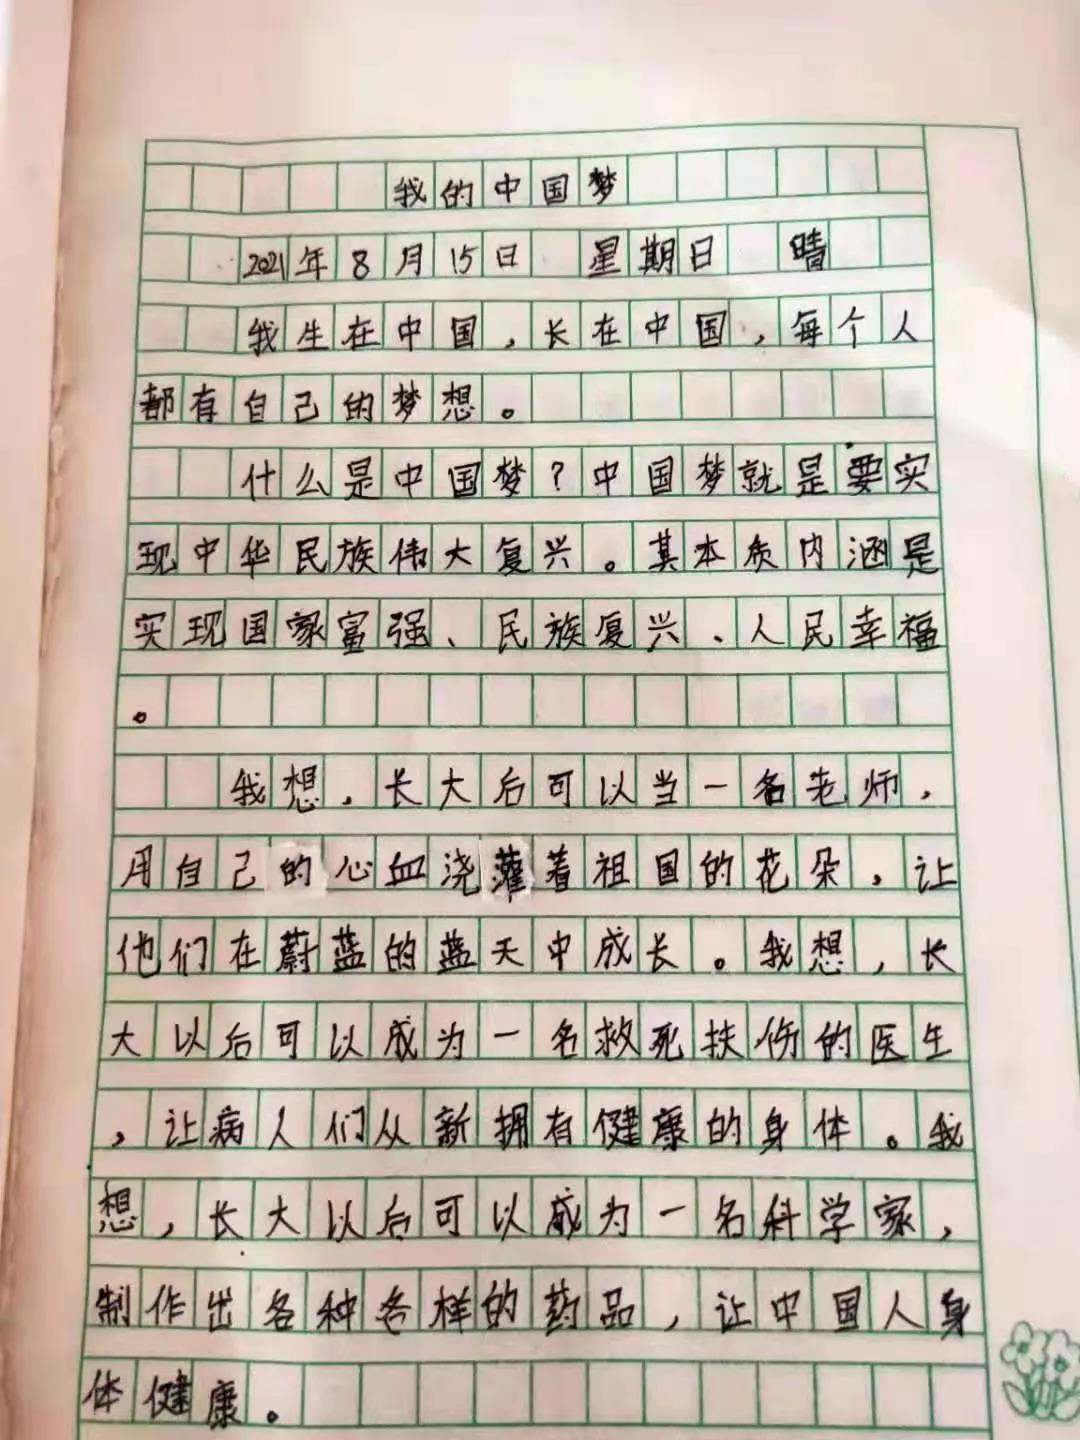 我的中国梦
2021年8月15日 星期日 晴
我生在中国,长在中国,每个人
都有自己的梦想。
什么是中国梦?中国梦就是要实
现中华民族伟大复兴。其本质内涵是
实现国家富强、民族复兴、人民幸福
。
我想,长大后可以当一名老师,
用自己的心血浇灌着祖国的花朵,让
他们在蔚蓝的蓝天中成长。我想,长
大以后可以成为一名救死扶伤的医生
,让病人们从新拥有健康的身体。我
想,长大以后可以成为一名科学家,
制作出各种各样的药品,让中国人身
体健康。